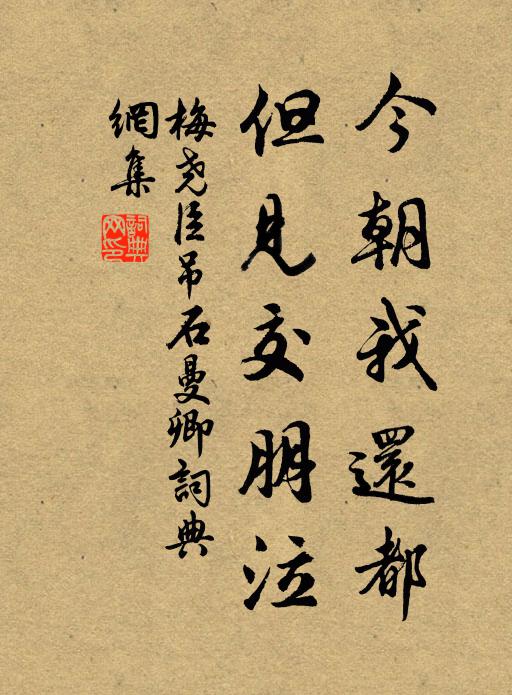 今朝我還都
但見交朋泣
梅尧臣吊石曼卿詞典
網集
詞典網印